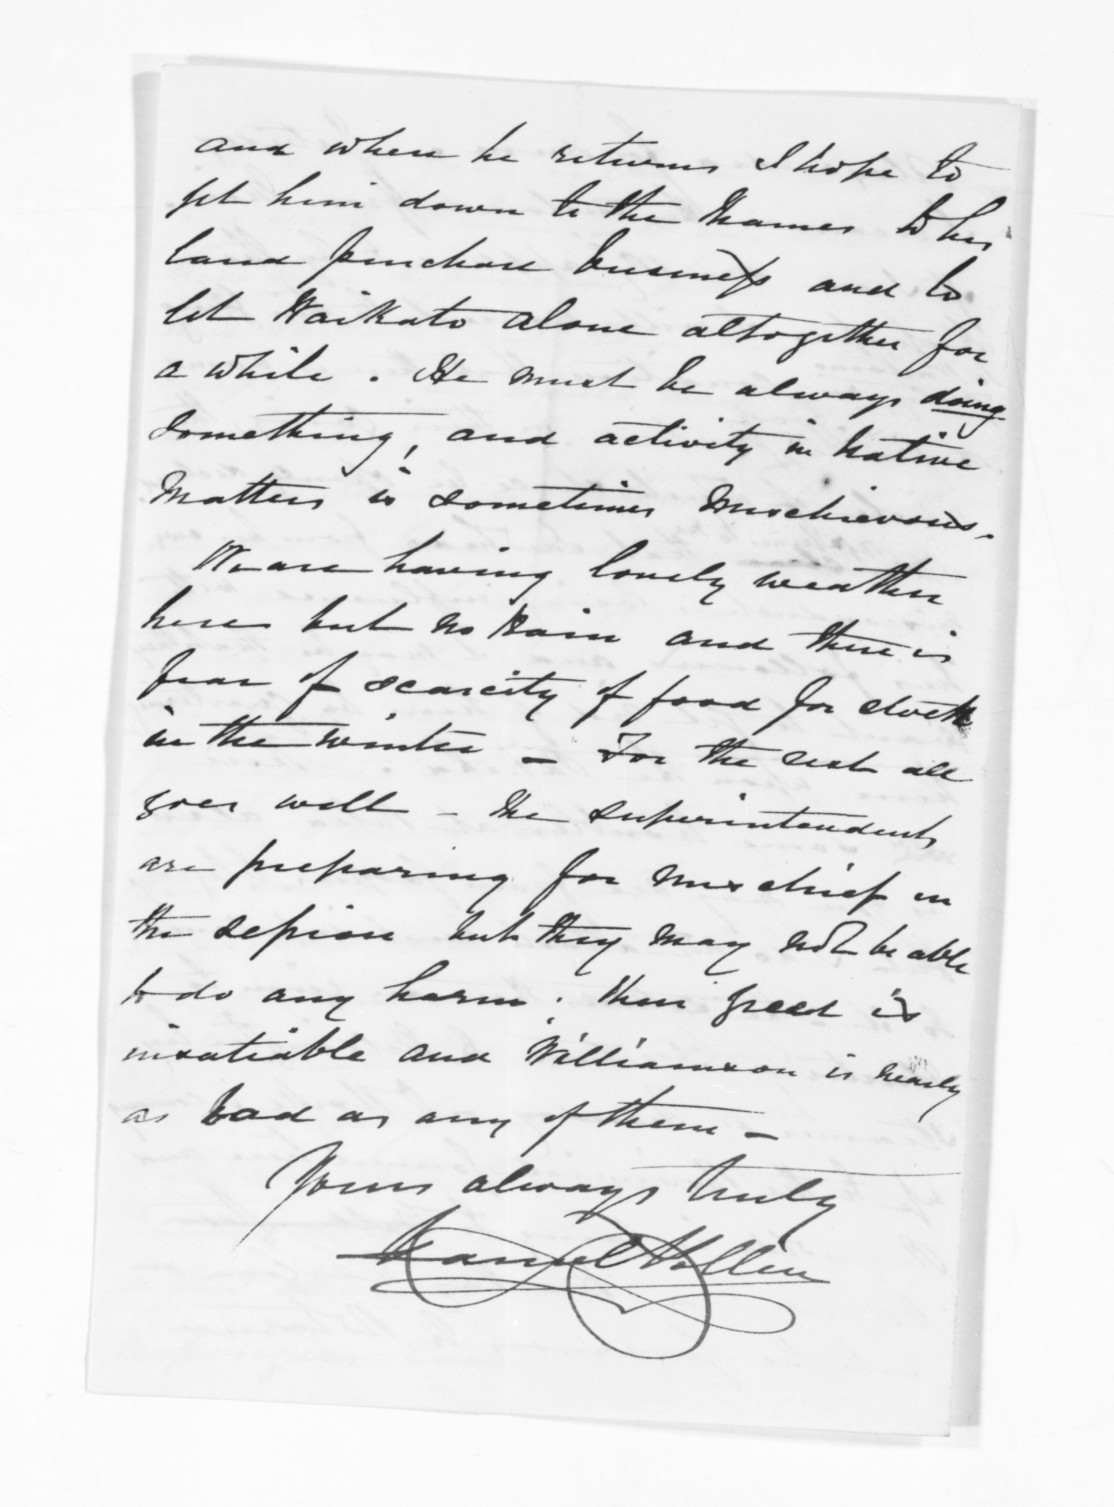 and when he returns I hope to
get him down to the Thames to his
land purchase business and to
let Waikato alone altogether for
a while. He must be always doing
something, and activity in Native
Matters is sometimes Mischievous.
We are having lovely weather
here but no Rain and there is
fear of scarcity of food for stock
in the winter - For the rest all
goes well - The Superintendents
are preparing for mischief in
the session but they may not be able
to do any harm. Their greed is
insatiable and Williamson is nearly
as bad as any of them -
Yours always truly
Daniel Pollen